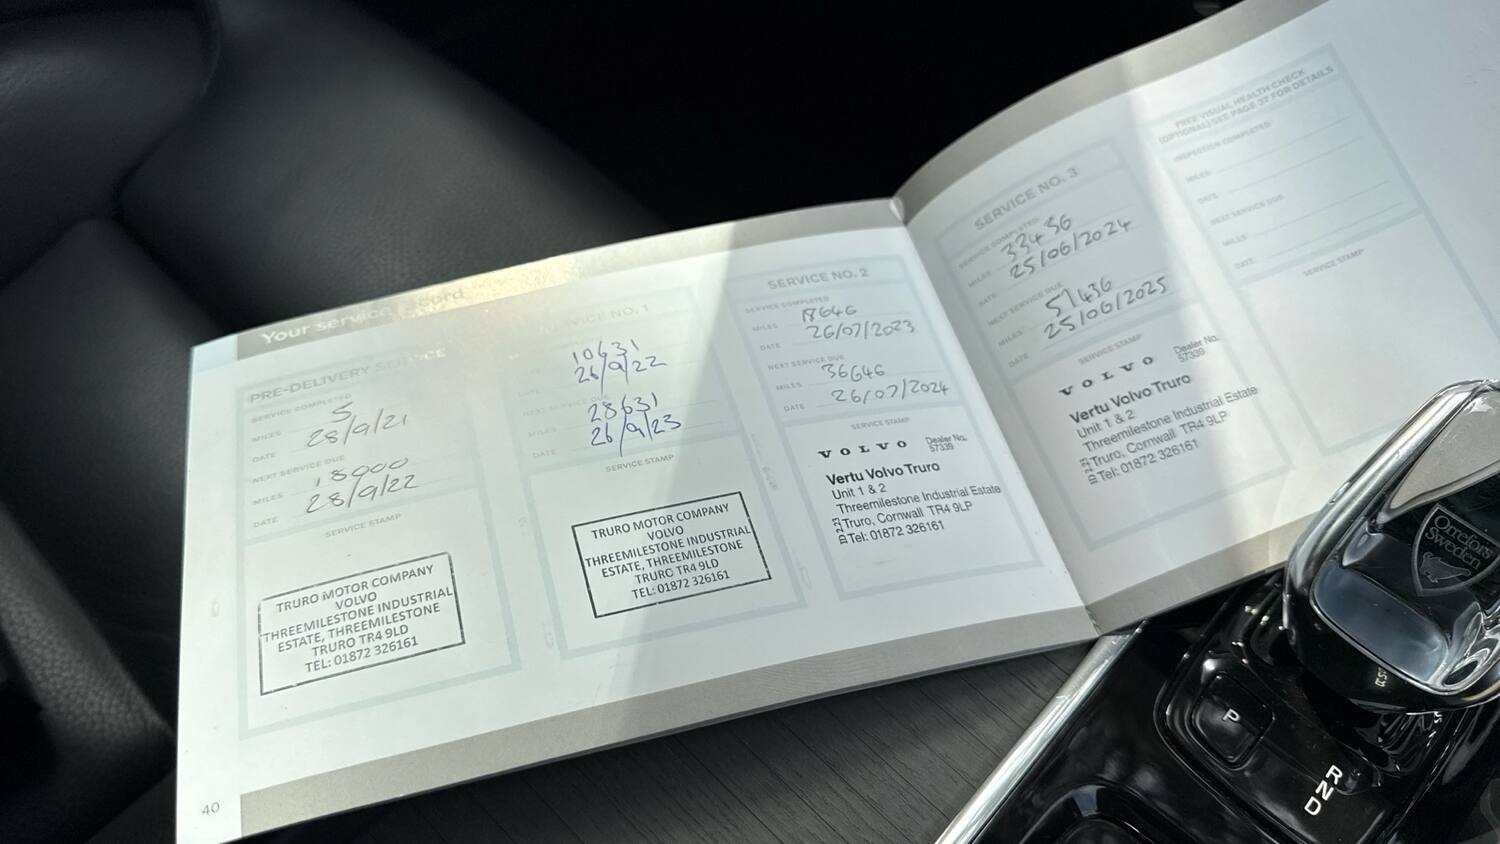 Your service record
PRE-DELIVERY SERVICE
SERVICE COMPLETED
MILES 5
DATE 28/9/21
NEXT SERVICE DUE
MILES 18000
DATE 28/9/22
SERVICE STAMP
TRURO MOTOR COMPANY
VOLVO
THREEMILESTONE INDUSTRIAL
ESTATE, THREEMILESTONE
TRURO TR4 9LD
TEL: 01872 326161
40
SERVICE NO. 1
10631
26/9/22
NEXT SERVICE DUE
MILES 28631
DATE 26/9/23
SERVICE STAMP
TRURO MOTOR COMPANY
VOLVO
THREEMILESTONE INDUSTRIAL
ESTATE, THREEMILESTONE
TRURO TR4 9LD
TEL: 01872 326161
SERVICE NO. 2
SERVICE COMPLETED
MILES 18646
DATE 26/07/2023
NEXT SERVICE DUE
MILES 36646
DATE 26/07/2024
SERVICE STAMP
VOLVO Dealer No. 57339
Vertu Volvo Truro
Unit 1 & 2
Threemilestone Industrial Estate
Truro, Cornwall TR4 9LP
Tel: 01872 326161
SERVICE NO. 3
SERVICE COMPLETED
MILES 33436
DATE 25/06/2024
NEXT SERVICE DUE
MILES 51436
DATE 25/06/2025
SERVICE STAMP
VOLVO Dealer No. 57339
Vertu Volvo Truro
Unit 1 & 2
Threemilestone Industrial Estate
Truro, Cornwall TR4 9LP
Tel: 01872 326161
FREE VISUAL HEALTH CHECK
(OPTIONAL) SEE PAGE 37 FOR DETAILS
INSPECTION COMPLETED
MILES
DATE
NEXT SERVICE DUE
MILES
DATE
SERVICE STAMP
Orrefors
Sweden
P
R
N
D